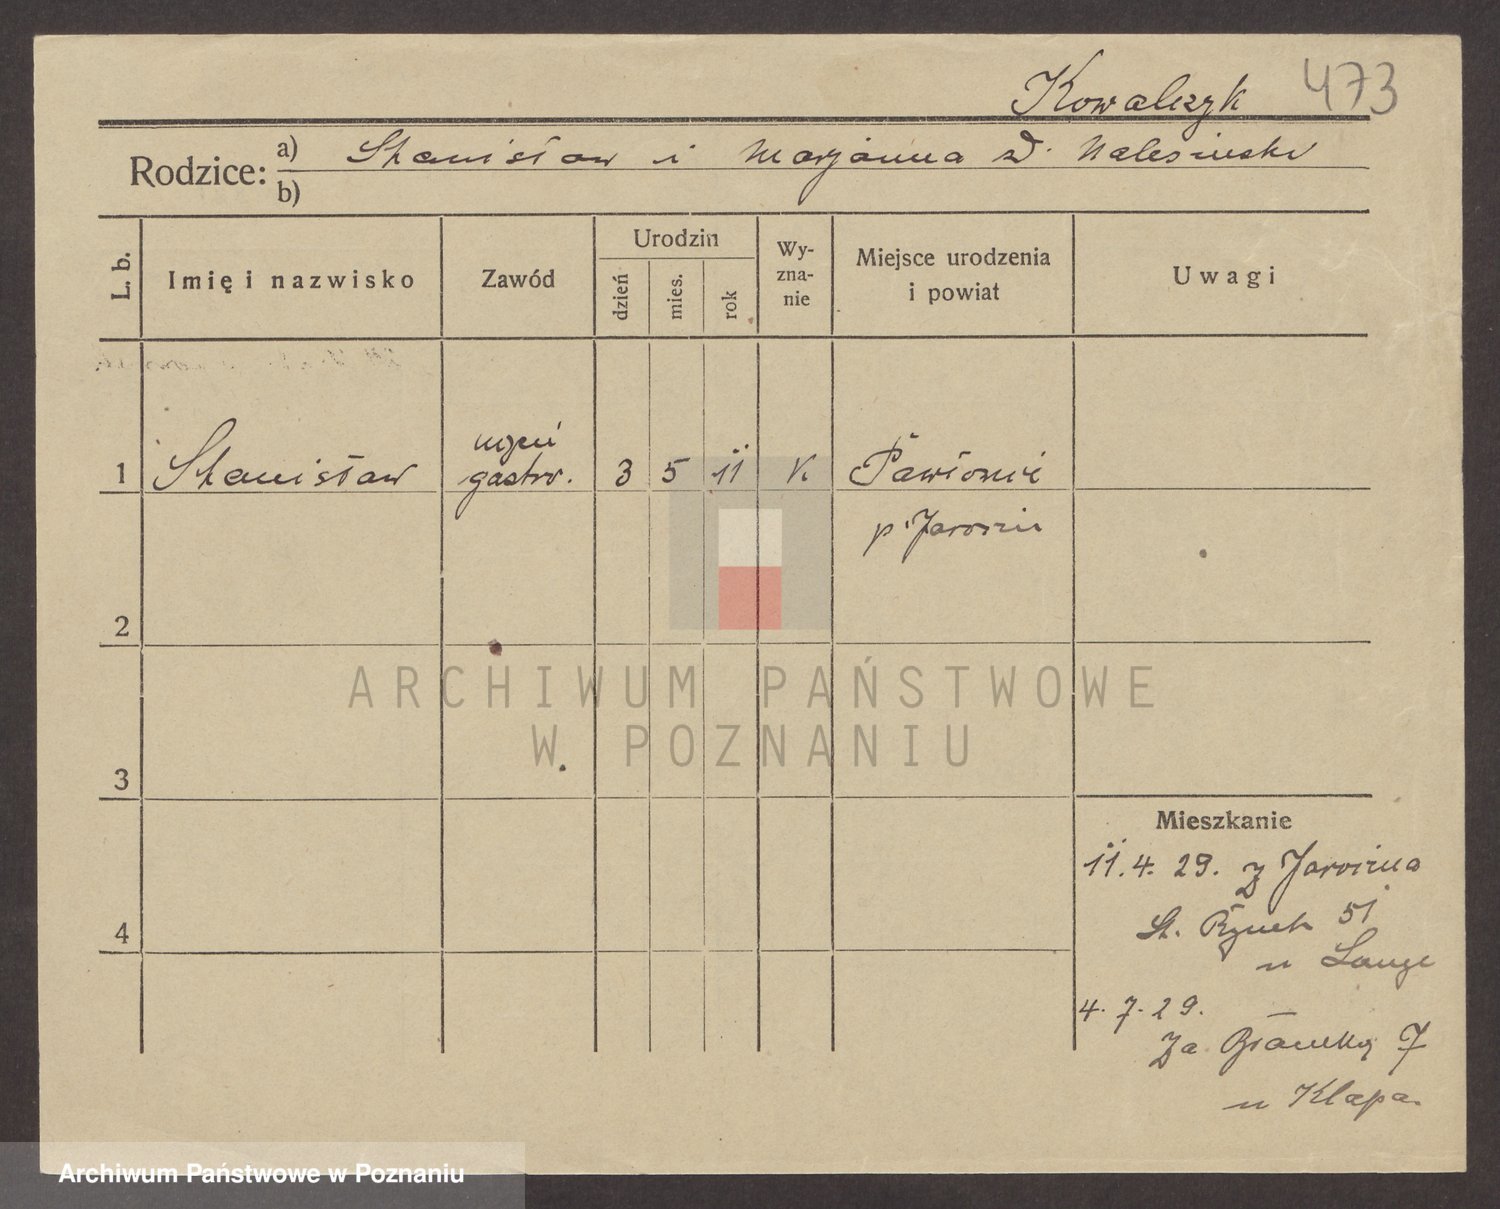 Kowalczyk 473
Rodzice: a) Stanisław i Marjanna d.
b)
L. b.
Imię i nazwisko
Zawód
Urodzin
dzień
mies.
rok
Wy-
zna-
nie
Miejsce urodzenia
i powiat
Uwagi
uczeń
1 Stanisław gastr. 3 5 11 K Pawłowic
p. Jarocin
2
3
4
Mieszkanie
11. 4. 29. z Jarocina
St. Rynek 51
u Lange
4. 7. 29.
Za Bramką 7
u Klapa
ARCHIWUM PAŃSTWOWE
W POZNANIU
Archiwum Państwowe w Poznaniu